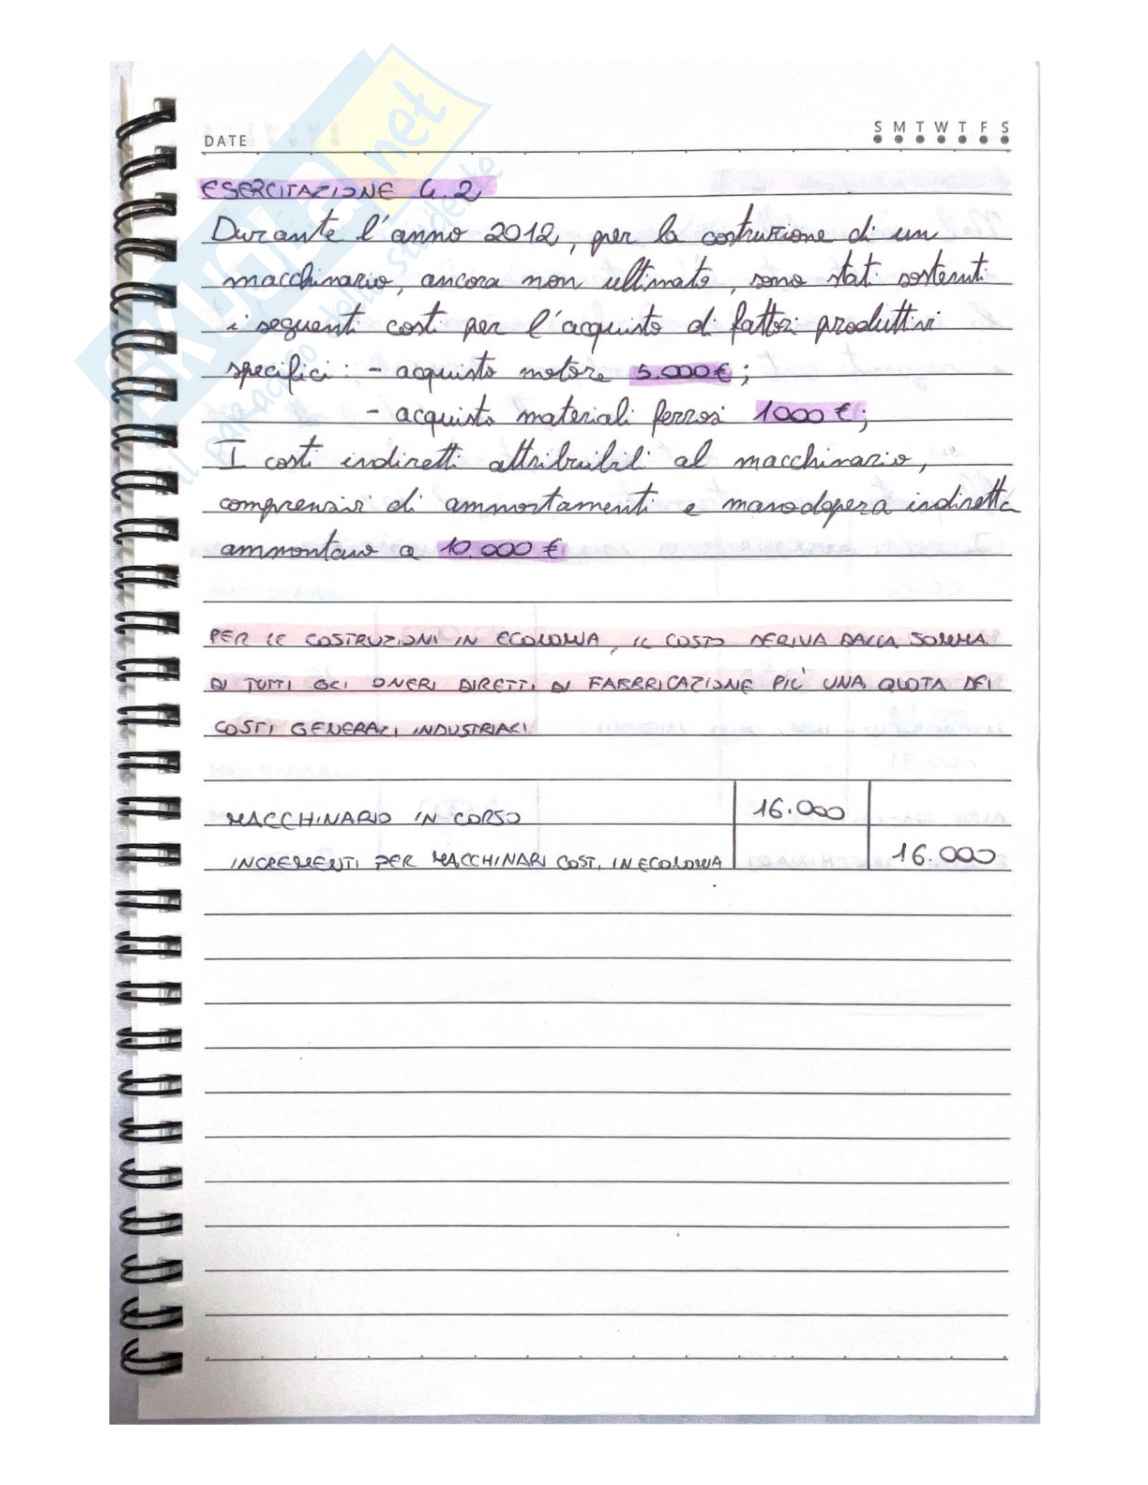 SKUOLA.net
il paradiso dello studente
DATE
S M T W T F S
ESERCITAZIONE 4.2
Durante l'anno 2012, per la costruzione di un
macchinario, ancora non ultimato, sono stati sostenuti
i seguenti costi per l'acquisto di fattori produttivi
specifici: - acquisto motore 5.000 €;
- acquisto materiali ferrosi 1000 €;
I costi indiretti attribuibili al macchinario,
comprensivi di ammortamenti e manodopera indiretta
ammontano a 10.000 €
PER LE COSTRUZIONI IN ECONOMIA, IL COSTO DERIVA DALLA SOMMA
DI TUTTI GLI ONERI DIRETTI DI FABBRICAZIONE PIÙ UNA QUOTA DEI
COSTI GENERALI INDUSTRIALI
MACCHINARIO IN CORSO 16.000
INCREMENTI PER MACCHINARI COST. IN ECONOMIA 16.000